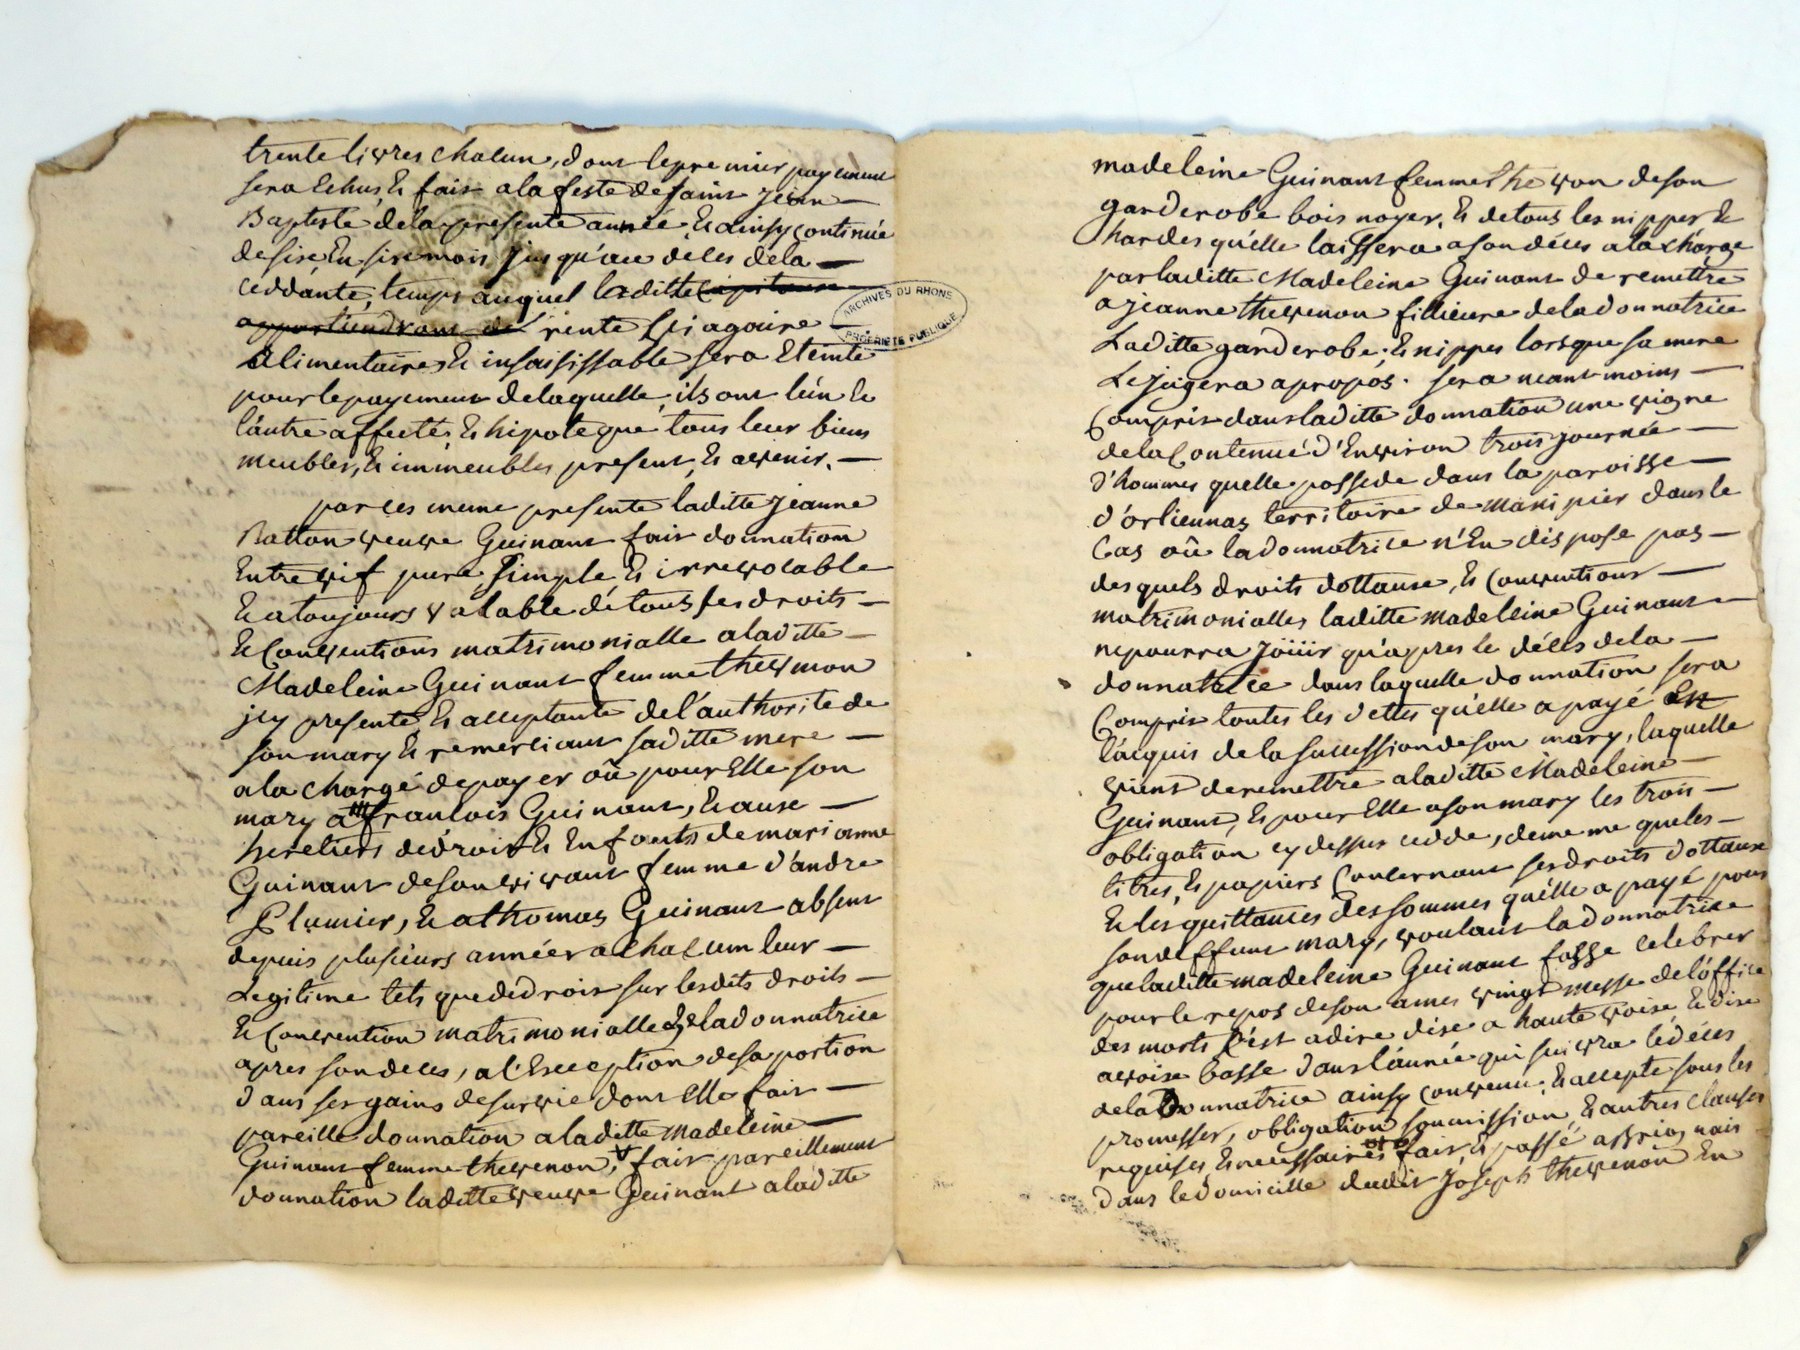 trente livres chacun, dont le premier payement
sera Echus, & fait a la feste de saint Jean
Baptiste de la presente année, & ainsy continué
de six En six mois jusqu'au deces de la
ceddante, temps auquel laditte
rente viagaire
alimentaire & insaisissable sera Eteinte
pour le payement de laquelle, ils ont l'un &
l'autre affecté, & hipotequé tous leur biens
meubles, & immeubles present, & avenir.
par ces meme presente laditte jeanne
Ratton veuve Guinant fait donnation
Entre vif pure, simple & irrevocable
& a toujours valable de tous ses droits
& Conventions matrimonialle a laditte
Madeleine Guinant femme thevenon
jcy presente & acceptante de l'authorité de
son mary & remerciant saditte mere
a la charge de payer où pour Elle son
mary a francois Guinant, & aux
heretiers de droit & Enfants de marianne
Guinant de son vivant femme d'andré
Plumier, & a thomas Guinant absent
depuis plusieurs années a chacum leur
Legitime tels que de droit sur lesdits droits
& Convention matrimonialle de la donnatrice
apres son deces, a l'Exception de sa portion
dans ses gains de survie dont Elle fait
pareille donnation a laditte madeleine
Guinant femme thevenon, fait pareillement
donnation laditte veuve Guinant a laditte
madeleine Guinant femme thevenon de son
garderobe bois noyer, & de tous les nippes &
hardes qu'elle laissera a son déces a la charge
par laditte Madeleine Guinant de remettre
a jeanne thevenon fillieure de la donnatrice
Laditte garderobe, & nippes lorsque sa mere
Le jugera apropos. sera neant moins
Compris dans laditte donnation une vigne
de la Contenue d'Environ trois journée
d'hommes quelle possede dans la paroisse
d'orliennas territoire de manipier dans le
Cas où la donnatrice n'En dispose pas
desquels droits dottaux, & Conventions
matrimonialles laditte madeleine Guinant
ne pourra joüiir qu'apres le décès de la
donnatrice dans laquelle donnation sera
Compris toutes les dettes qu'elle a payé En
l'acquis de la succession de son mary, laquelle
vient de remettre a laditte Madeleine
Guinant, & pour Elle a son mary les trois
obligation cy dessus cedde, de meme que les
titres, & papiers Concernant ses droits dottaux
& les quittances des sommes qu'elle a payé pour
son deffunt mary, voulant la donnatrice
que laditte madeleine Guinant fasse celebrer
pour le repos de son ames vingt messe de l'office
des morts C'est a dire dix a haute voise, & dix
a voise basse dans l'année qui suivra le déces
de la Donnatrice ainsy convenu, & accepté sous les
promesses, obligation, soumission, & autres clauses
requises & necessaires fait, & passé a Brignais
dans le domicille dudit Joseph thevenon En
ARCHIVES DU RHONE
PROPRIÉTÉ PUBLIQUE